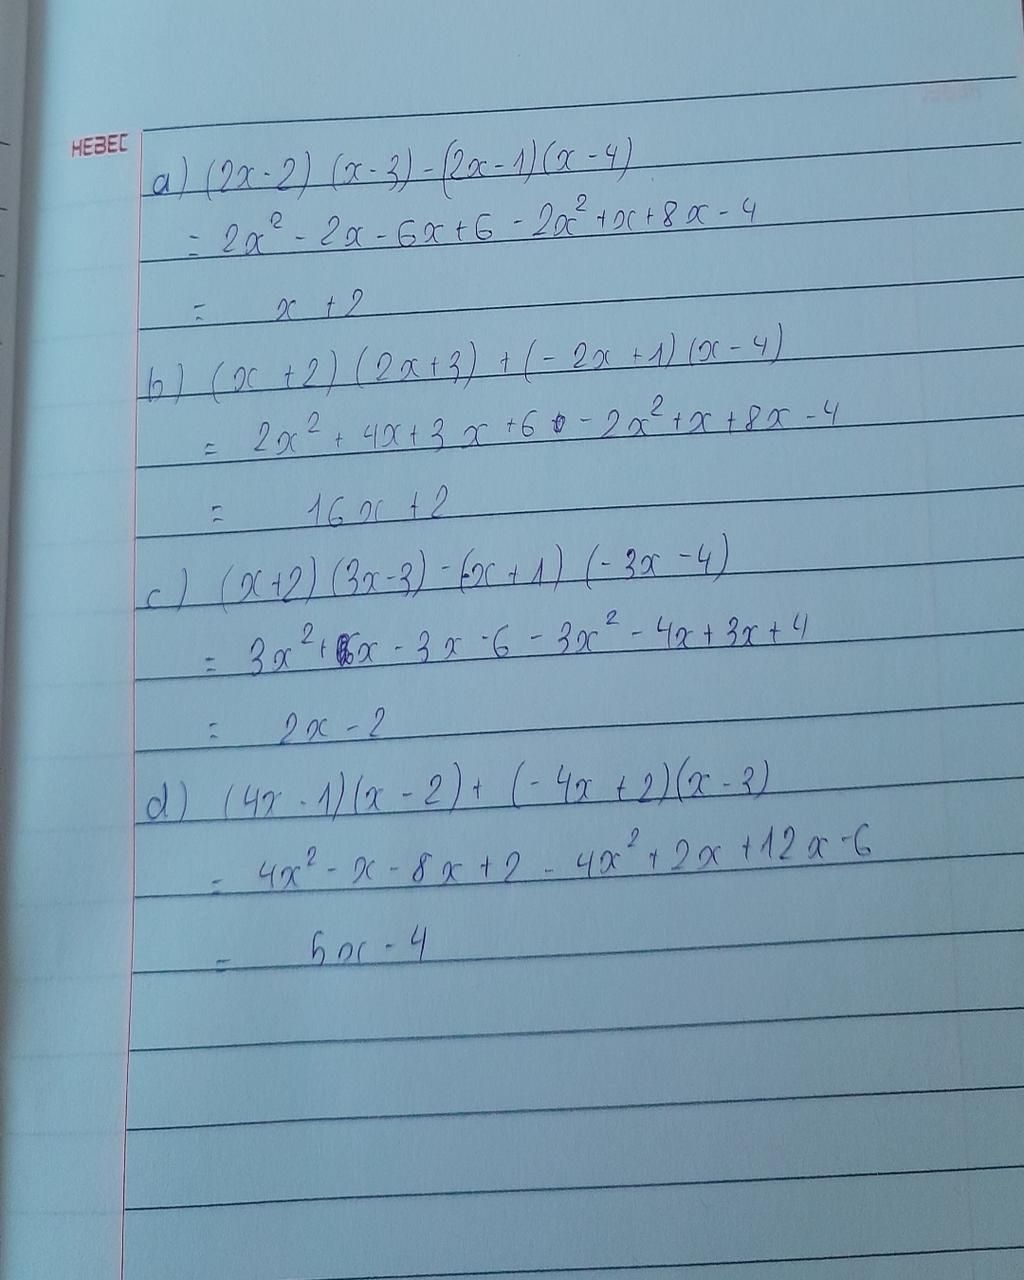 HEBEC
a) (2x - 2) (x - 3) - (2x - 1)(x - 4)
= 2x² - 2x - 6x + 6 - 2x² + x + 8x - 4
= x + 2
b) (x + 2) (2x + 3) + (- 2x + 1) (x - 4)
= 2x² + 4x + 3x + 6 - 2x² + x + 8x - 4
= 16x + 2
c) (x + 2) (3x - 3) - (-x + 1) (- 3x - 4)
= 3x² + 6x - 3x - 6 - 3x² - 4x + 3x + 4
= 2x - 2
d) (4x - 1)(x - 2) + (- 4x + 2)(x - 3)
= 4x² - x - 8x + 2 - 4x² + 2x + 12x - 6
= 5x - 4